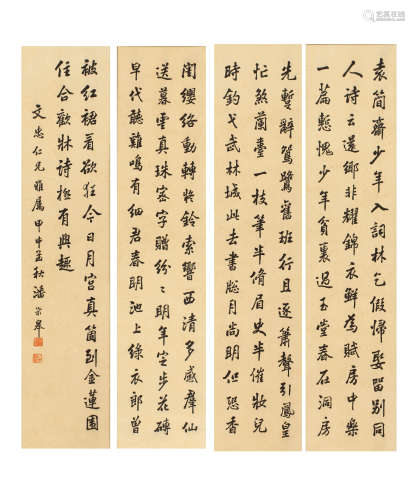 袁簡齋少年入詞林乞假歸娶留別同
人詩云還鄉非耀錦衣鮮為賦房中樂
一篇慙愧少年貧裏過玉堂春在洞房
先暫辭鴛鷺舊班行且逐簫聲引鳳皇
忙煞蘭臺一枝筆半脩眉史半催妝兒
時釣弋武林城此去書窗月尚明但恐香
閨纓絡動轉將鈴索響西清多感羣仙
送暮雲真珠密字贈紛〻明年定步花磚
早代聽雞鳴有細君春明池上綠衣郎曾
被紅裙看欲狂今日月宮真箇到金蓮圍
住合歡牀詩極有興趣
文忠仁兄雅屬 甲申孟秋潘齡皋